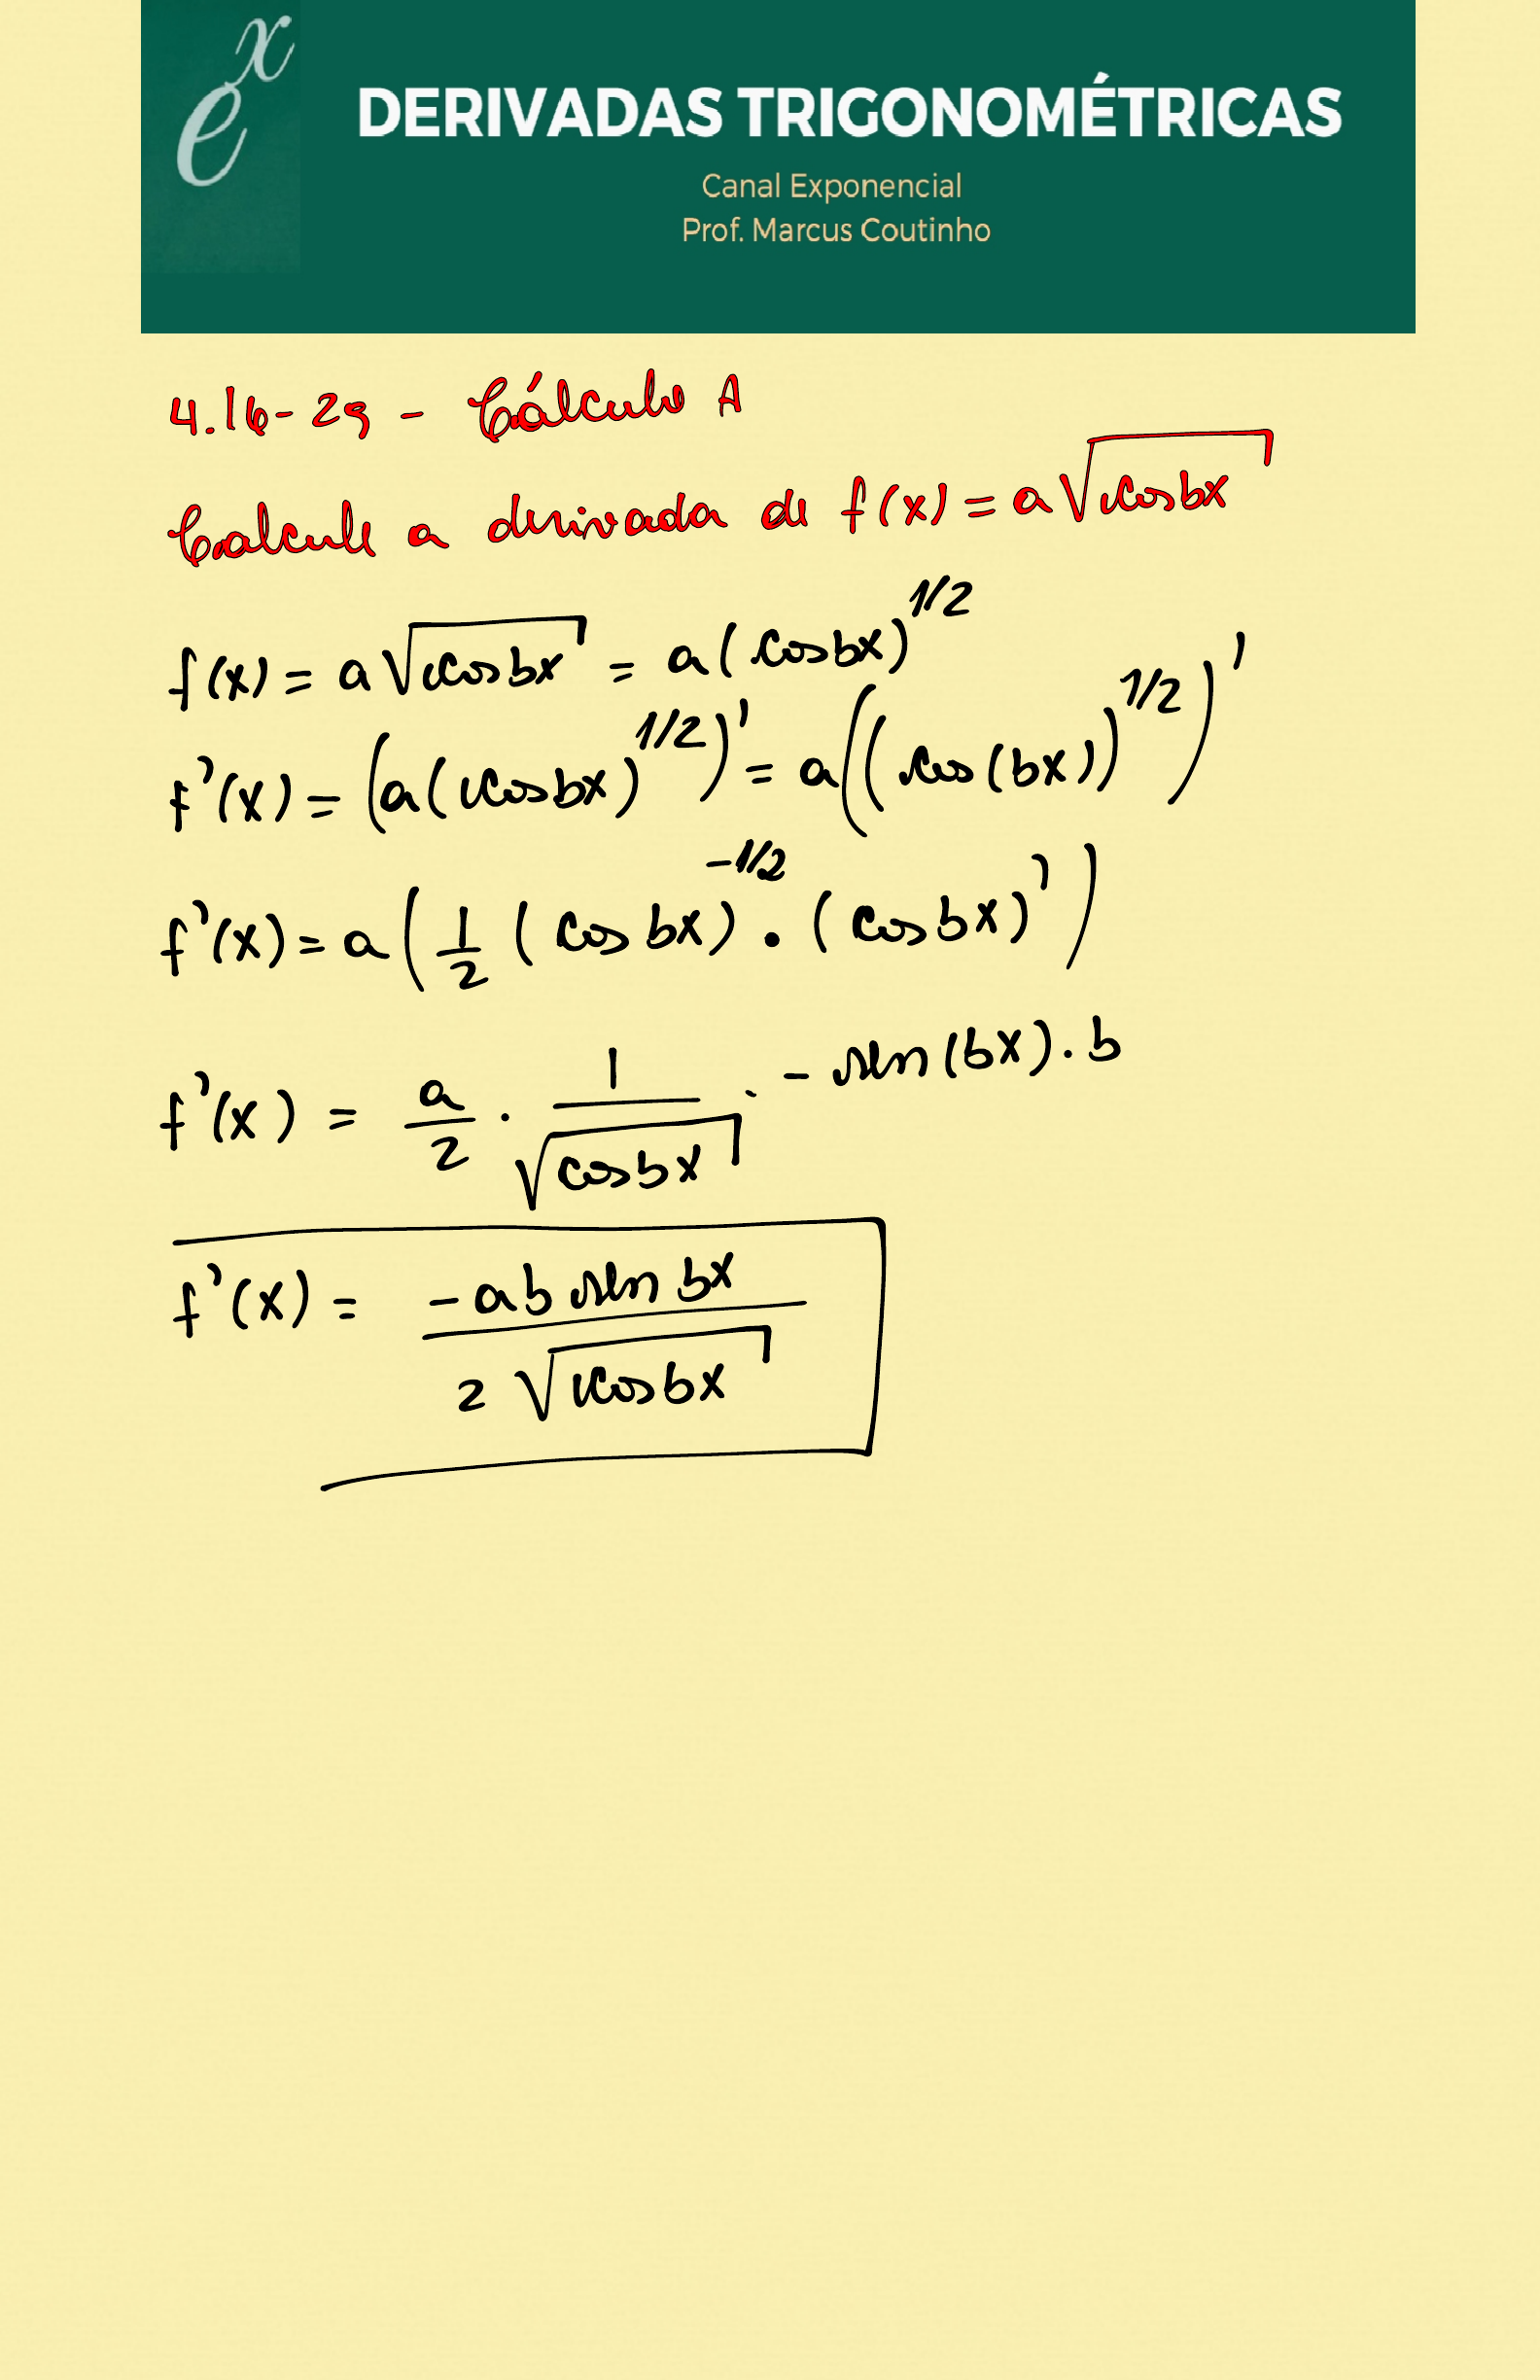 e^x
DERIVADAS TRIGONOMÉTRICAS
Canal Exponencial
Prof. Marcus Coutinho
4.16-29 - Cálculo A
Calcule a derivada de f(x) = a√(cosbx)
f(x) = a√(cosbx) = a(cosbx)^1/2
f'(x) = (a(cosbx)^1/2)' = a((cos(bx))^1/2)'
f'(x) = a(1/2 (cosbx)^-1/2 · (cosbx)')
f'(x) = a/2 · 1/√(cosbx) · - sen(bx) · b
f'(x) = -ab sen bx / 2√(cosbx)